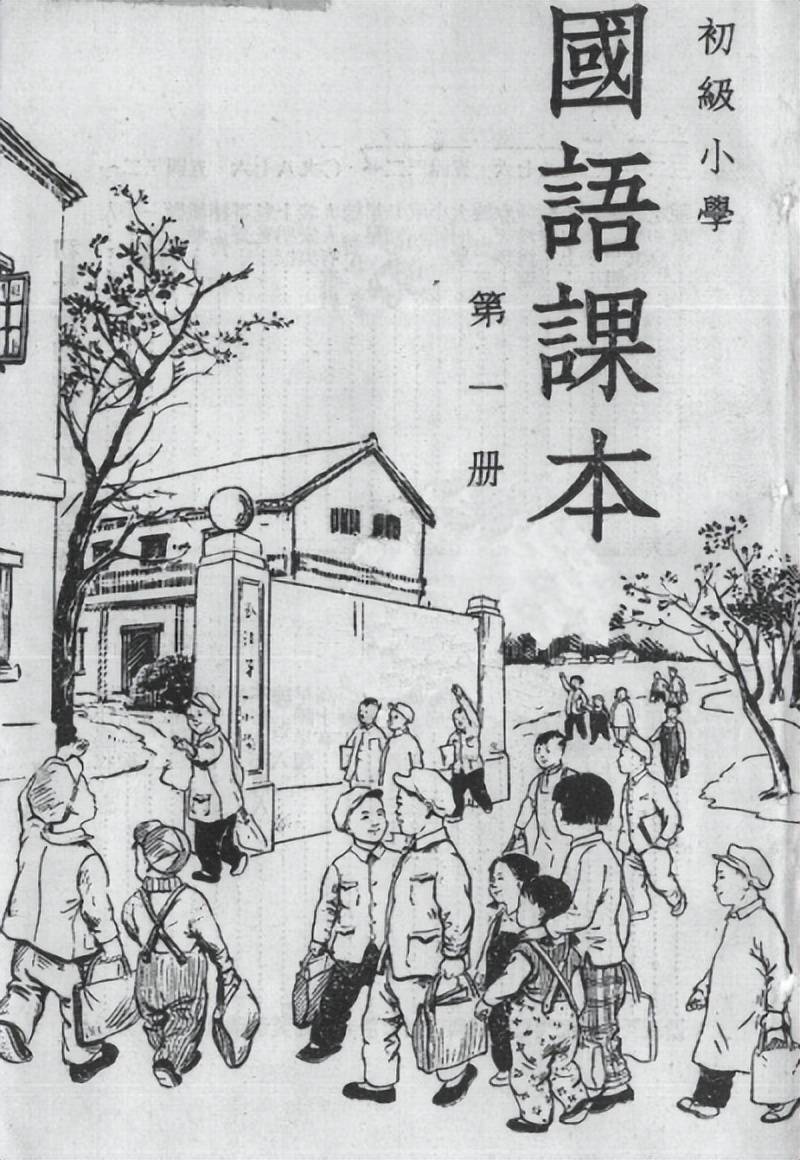 初級小學
國語課本
第一册